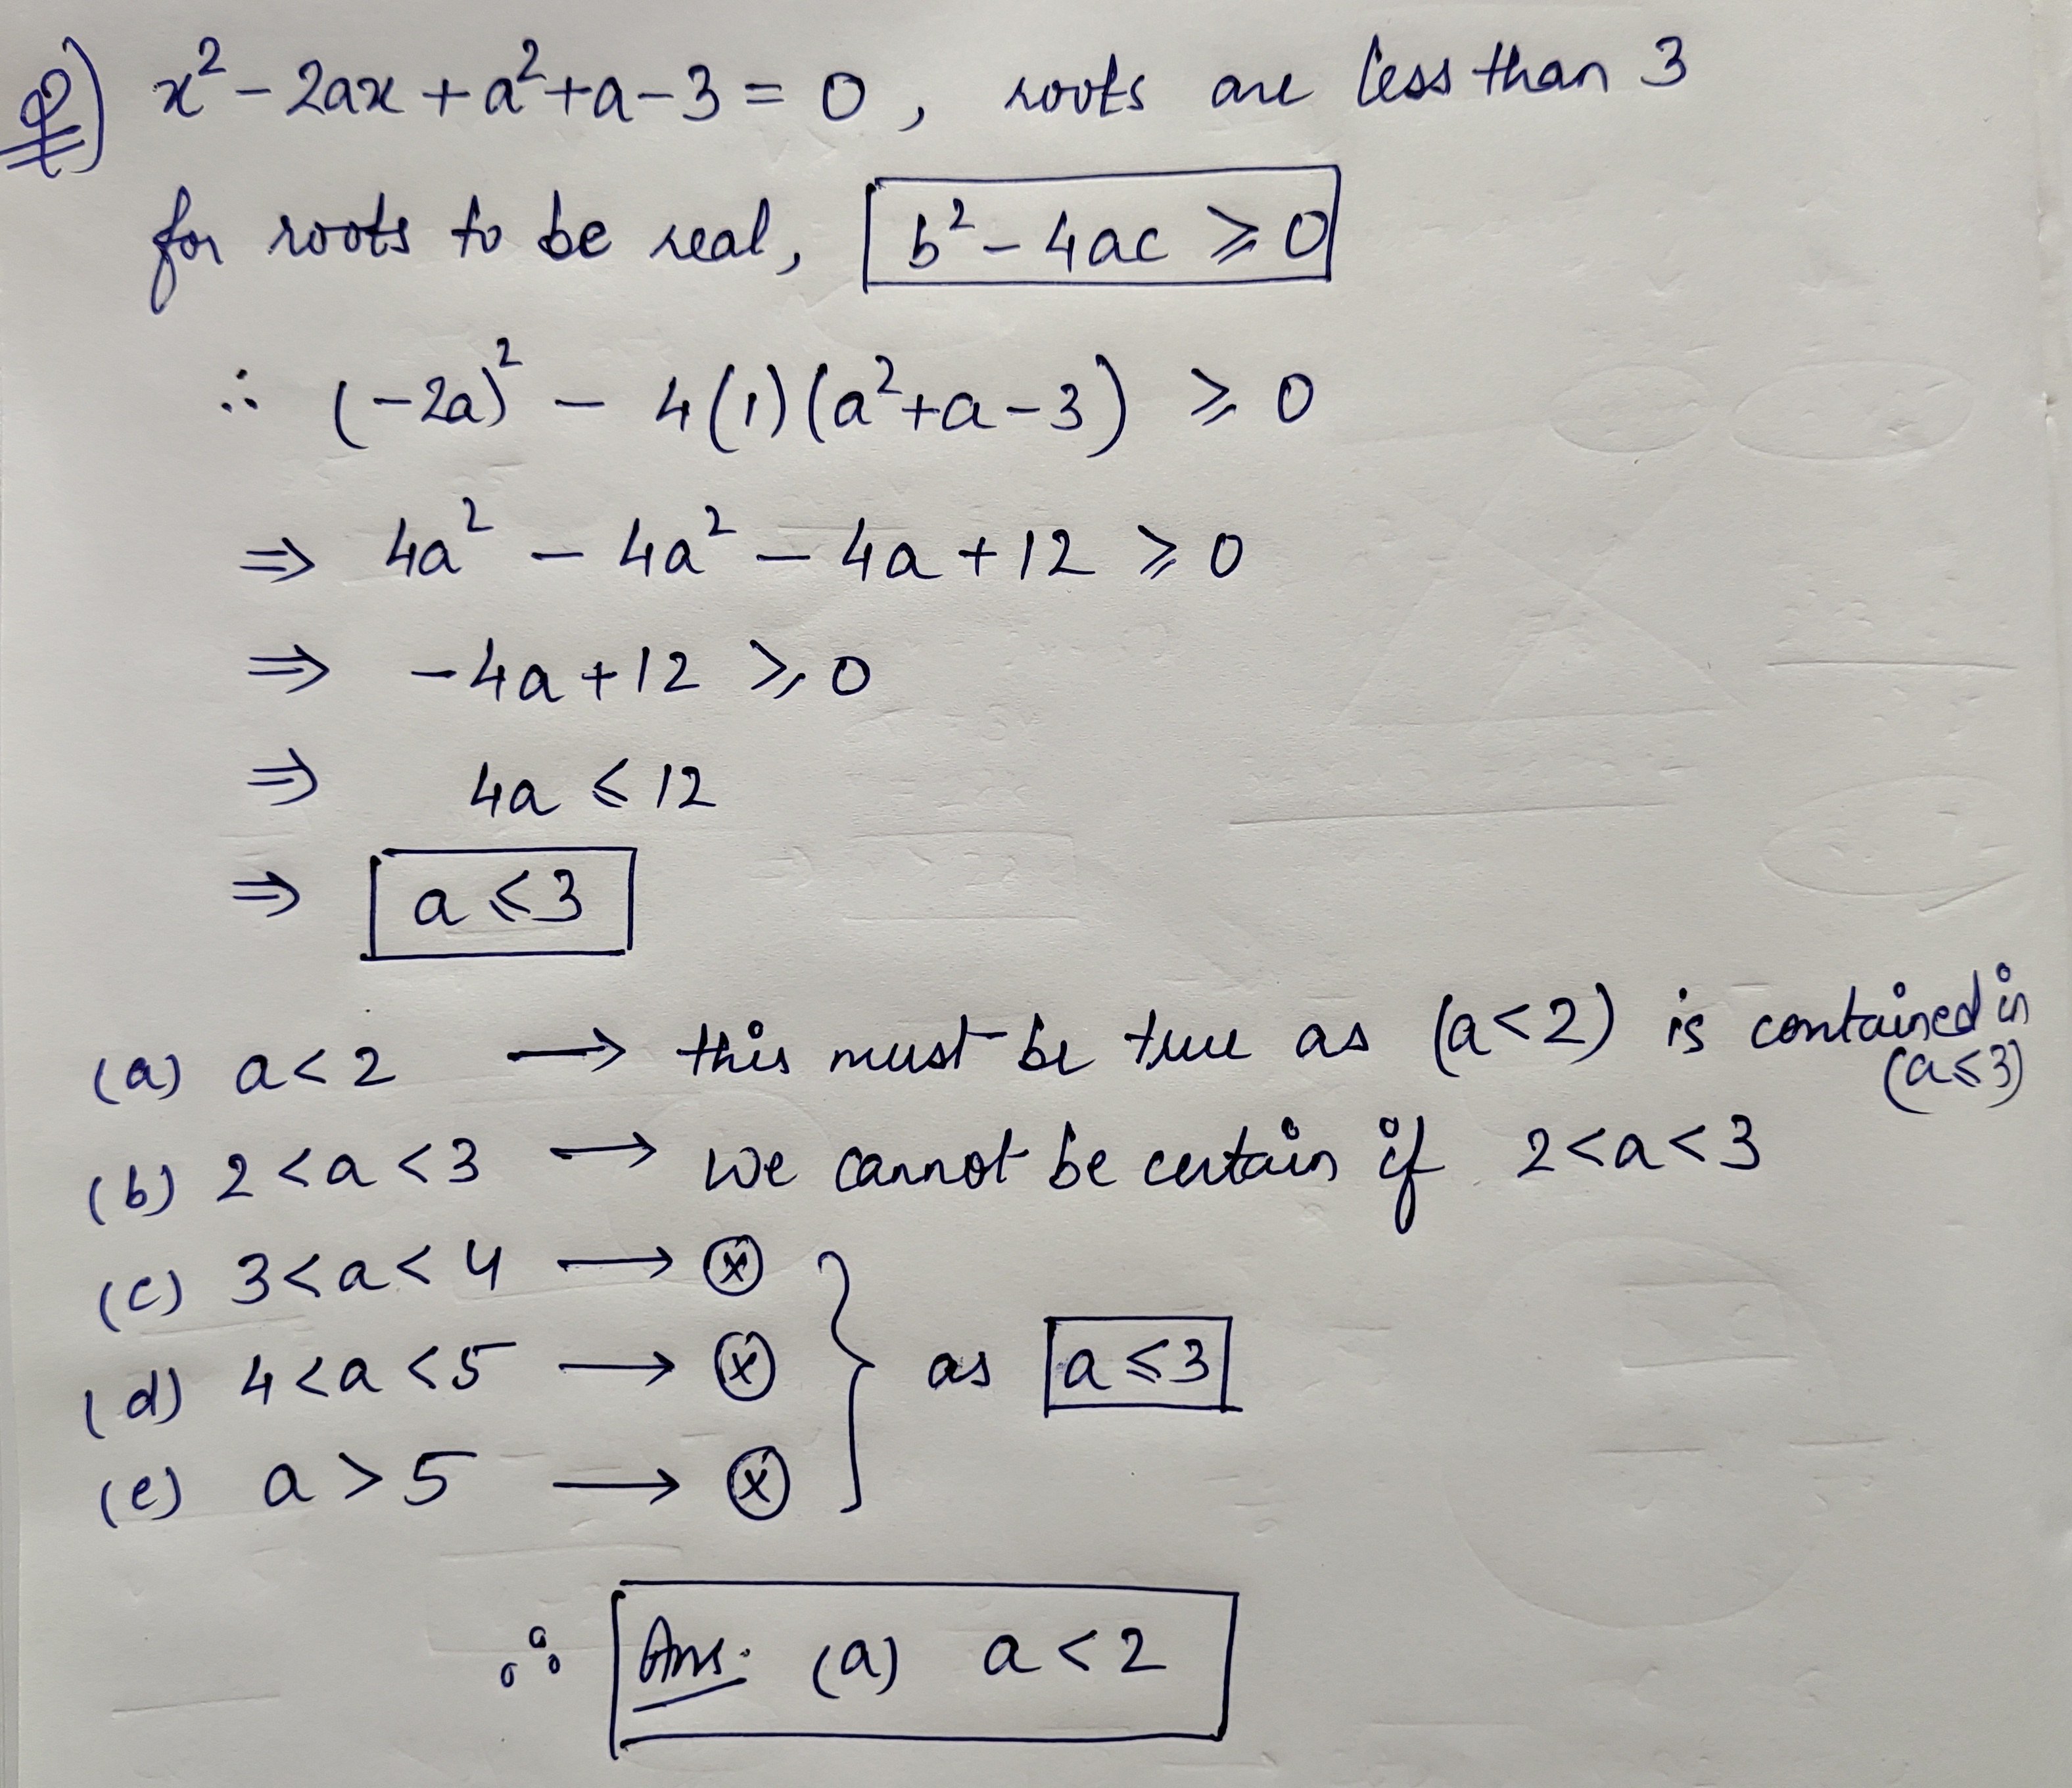 Q) x² - 2ax + a² + a - 3 = 0, roots are less than 3
for roots to be real, b² - 4ac ⩾ 0
∴ (-2a)² - 4(1)(a² + a - 3) ⩾ 0
⇒ 4a² - 4a² - 4a + 12 ⩾ 0
⇒ -4a + 12 ⩾ 0
⇒ 4a ⩽ 12
⇒ a ⩽ 3
(a) a < 2 → this must be true as (a < 2) is contained in (a ⩽ 3)
(b) 2 < a < 3 → we cannot be certain if 2 < a < 3
(c) 3 < a < 4 → ⓧ
(d) 4 < a < 5 → ⓧ } as a ⩽ 3
(e) a > 5 → ⓧ
∴ Ans: (a) a < 2